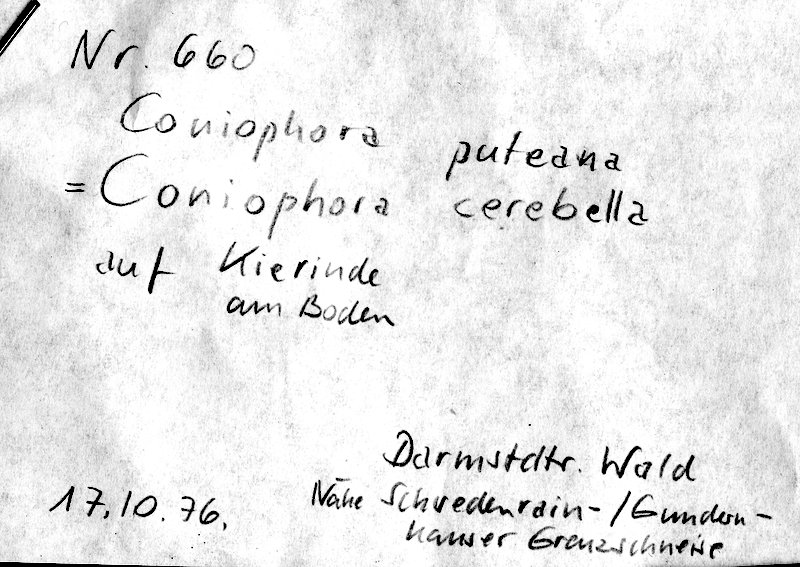 Nr. 660
Coniophora puteana
= Coniophora cerebella
auf Kierinde
am Boden
Darmstdtr. Wald
17.10.76.
Nähe Schwedenrain-/Gundern-
hauser Grenzschneise